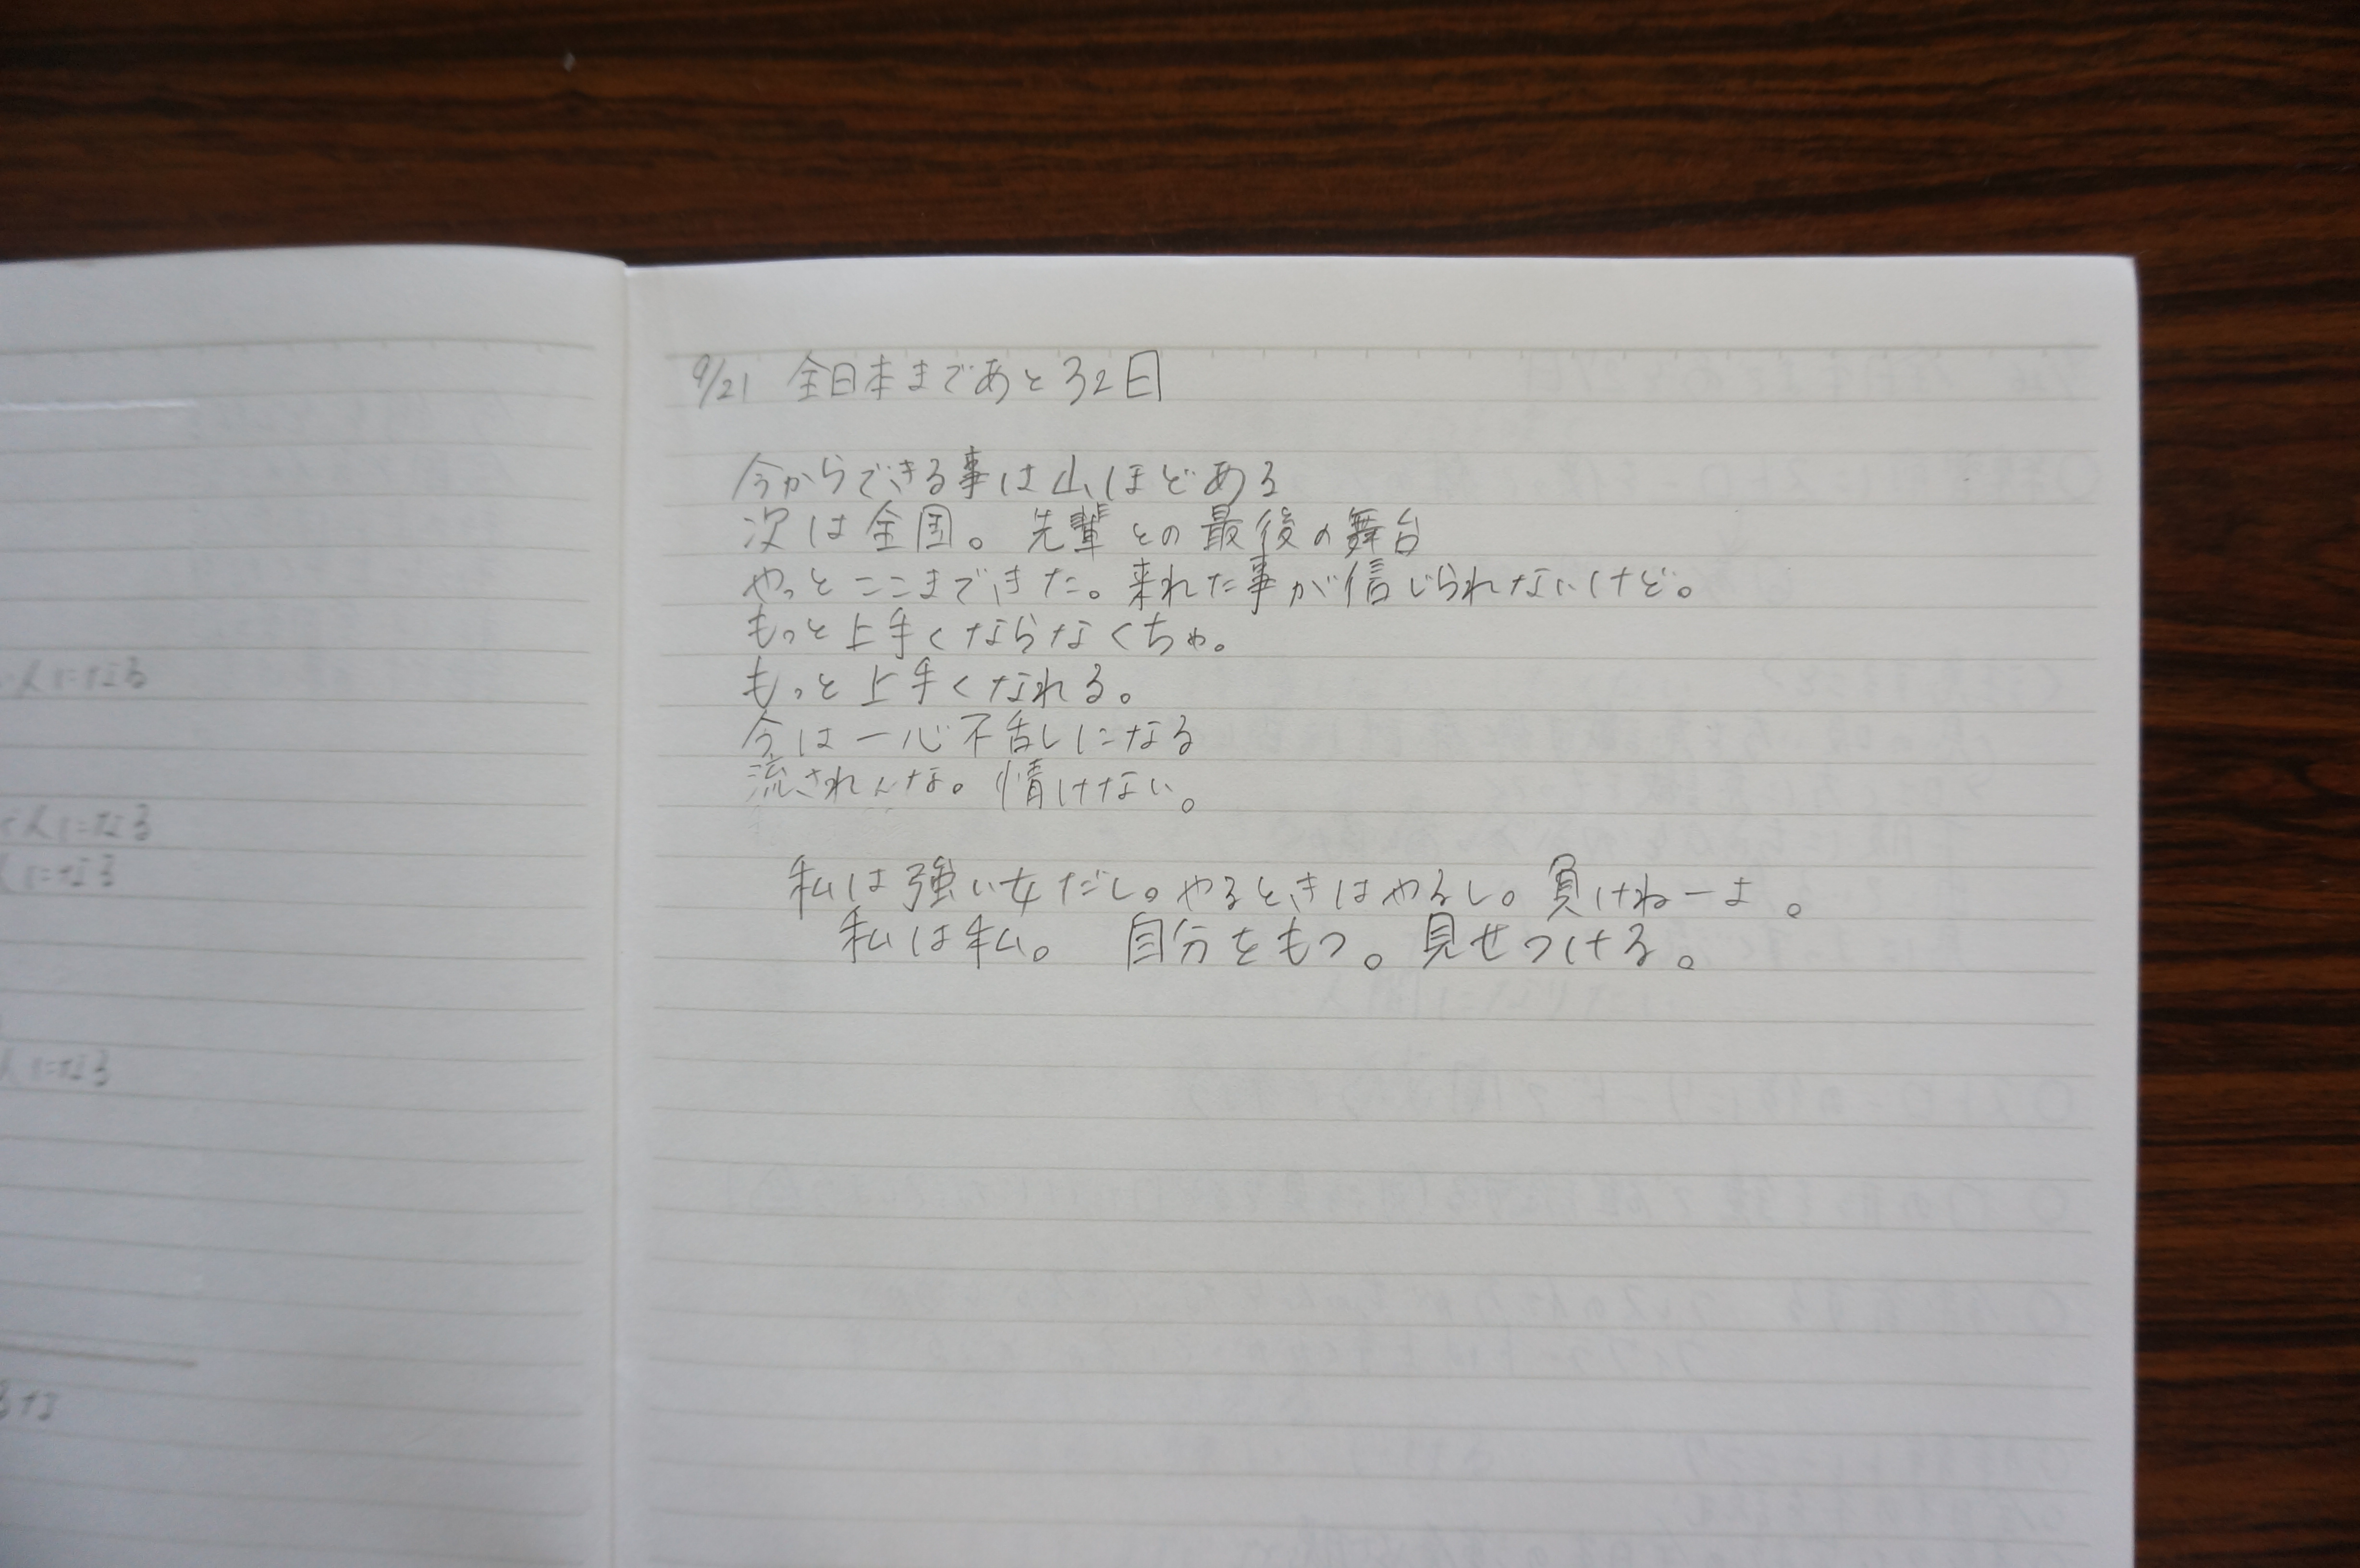 人になる
人になる
人になる
人になる
るな
9/21 全日本まであと32日
今からできる事は山ほどある
次は全国。先輩との最後の舞台
やっとここまできた。来れた事が信じられないけど。
もっと上手くならなくちゃ。
もっと上手くなれる。
今は一心不乱になる
流されんな。情けない。
私は強い女だし。やるときはやるし。負けねーよ。
私は私。 自分をもつ。見せつける。